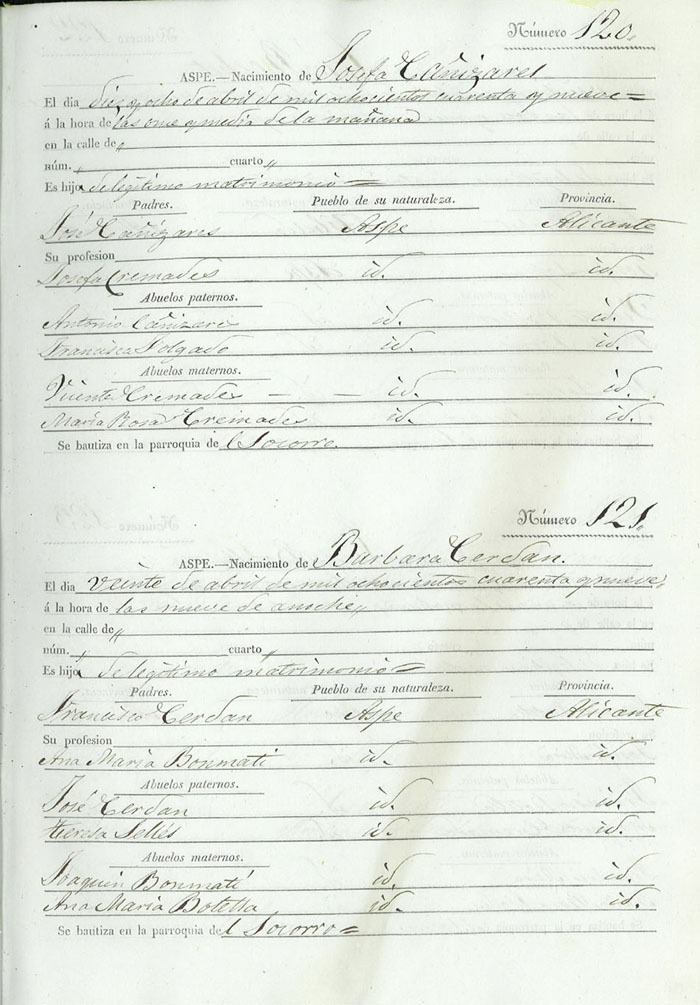 Número 120.
ASPE.—Nacimiento de Josefa Cañizares
El dia diez y ocho de abril de mil ochocientos cuarenta y nueve=
á la hora de las once y media de la mañana
en la calle de „
núm. „ cuarto „
Es hija de legitimo matrimonio=
Padres. Pueblo de su naturaleza. Provincia.
José Cañizares Aspe Alicante
Su profesion
Josefa Cremades id. id.
Abuelos paternos.
Antonio Cañizares id. id.
Francisca Folgado id. id.
Abuelos maternos.
Vicente Cremades — — id. id.
Maria Rosa Cremades id. id.
Se bautiza en la parroquia de l Socorro.
Número 121.
ASPE.—Nacimiento de Barbara Cerdan.
El dia veinte de abril de mil ochocientos cuarenta y nueve,
á la hora de las nueve de anoche „
en la calle de „
núm. „ cuarto „
Es hija de legitimo matrimonio=
Padres. Pueblo de su naturaleza. Provincia.
Francisco Cerdan Aspe Alicante
Su profesion
Ana Maria Bonmati id. id.
Abuelos paternos.
José Cerdan id. id.
Teresa Selles id. id.
Abuelos maternos.
Joaquin Bonmatí id. id.
Ana Maria Botella id. id.
Se bautiza en la parroquia de l Socorro=